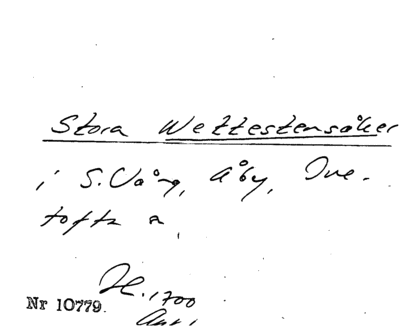 Stora Wettestensåker
i S. Vång, Åby, Ive-
tofta
H. 1700
Nr 10779.